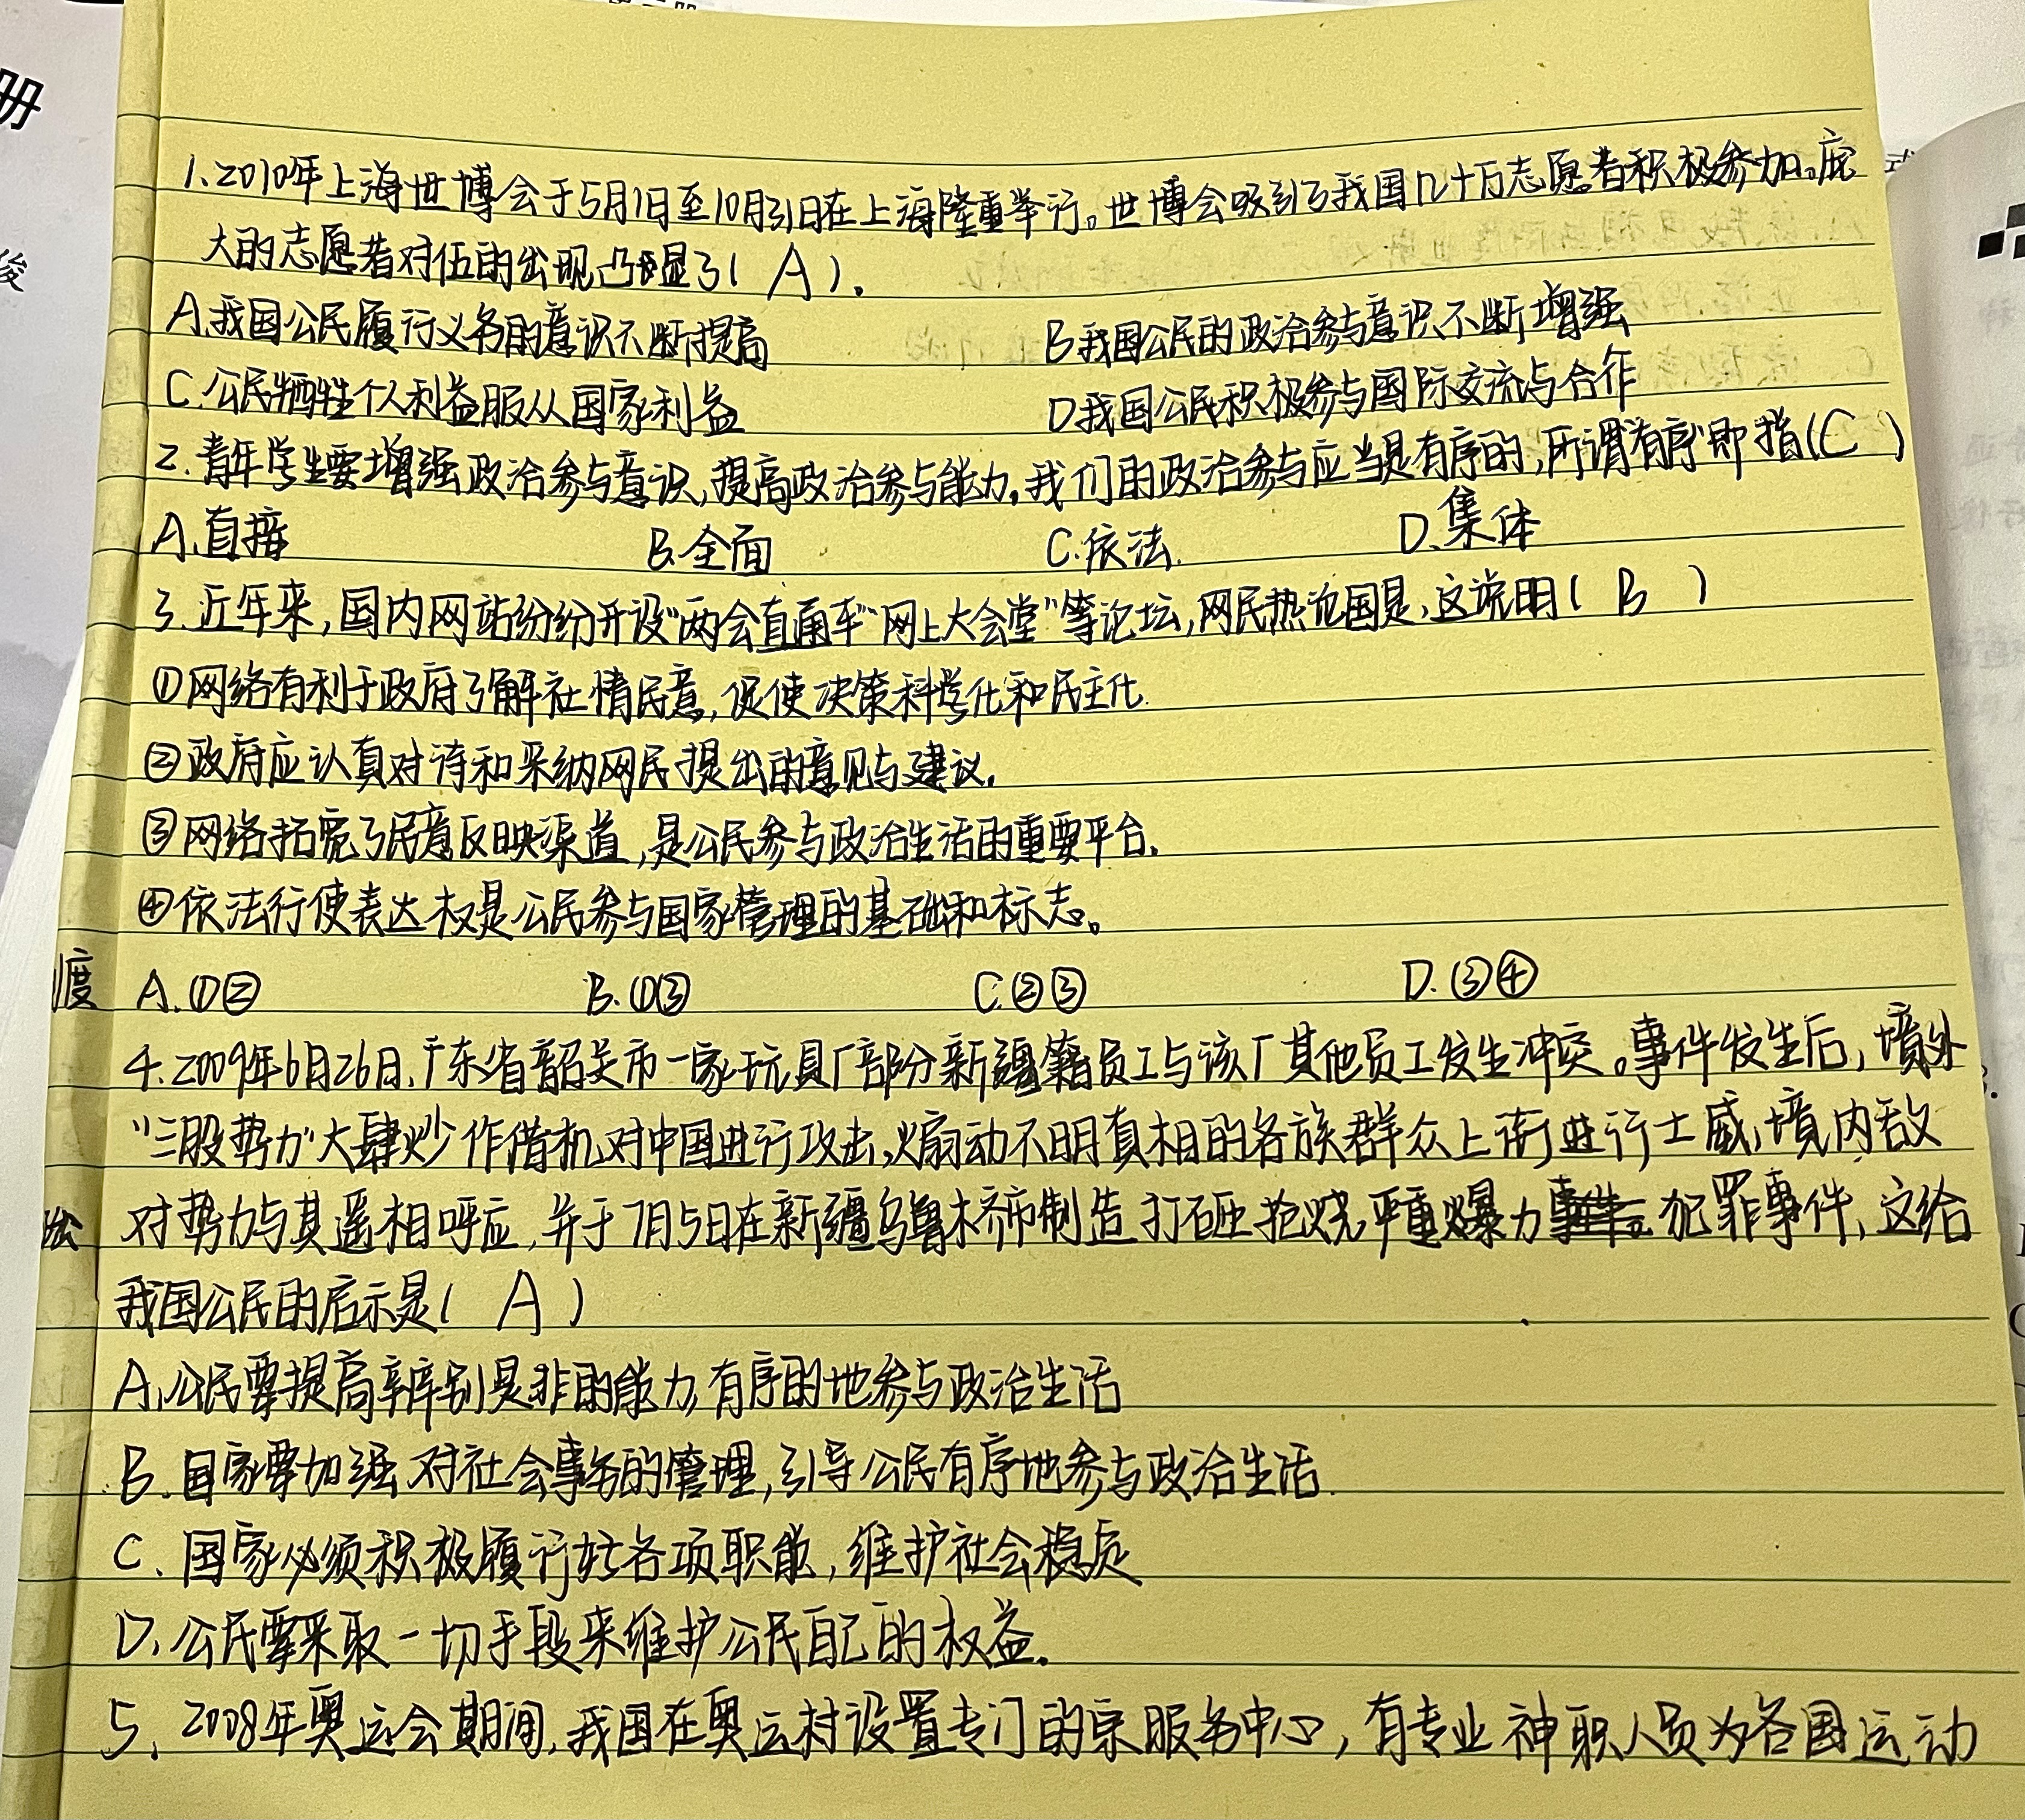 1.2010年上海世博会于5月1日至10月31日在上海隆重举行。世博会吸引了我国几十万志愿者积极参加。庞
大的志愿者对伍的出现凸显了( A ).
A.我国公民履行义务的意识不断提高 B.我国公民的政治参与意识不断增强
C.公民牺牲个人利益服从国家利益 D我国公民积极参与国际交流与合作
2.青年学生要增强政治参与意识,提高政治参与能力,我们的政治参与应当是有序的,所谓"有序"即指(C)
A.直接 B.全面 C.依法. D.集体
3.近年来,国内网站纷纷开设"两会直通车"网上大会堂"等论坛,网民热论国是,这说明( B )
①网络有利于政府了解社情民意,促使决策科学化和民主化.
②政府应认真对待和采纳网民提出的意见与建议.
③网络拓宽了民意反映渠道,是公民参与政治生活的重要平台.
④依法行使表达权是公民参与国家管理的基础和标志。
A.①② B.①③ C.②③ D.③④
4.2009年6月26日,广东省韶关市一家玩具厂部分新疆籍员工与该厂其他员工发生冲突。事件发生后,境外
"三股势力"大肆炒作借机对中国进行攻击,煽动不明真相的各族群众上街进行士威,境内敌
对势力与其遥相呼应,并于7月5日在新疆乌鲁木齐市制造打砸抢烧严重爆力犯罪事件,这给
我国公民的启示是( A )
A.公民要提高辨别是非的能力,有序的地参与政治生活
B.国家要加强对社会事务的管理,引导公民有序地参与政治生活.
C.国家必须积极履行好各项职能,维护社会稳定
D.公民要采取一切手段来维护公民自己的权益.
5.2008年奥运会期间,我国在奥运村设置专门的宗服务中心,有专业神职人员为各国运动
册
俊
度